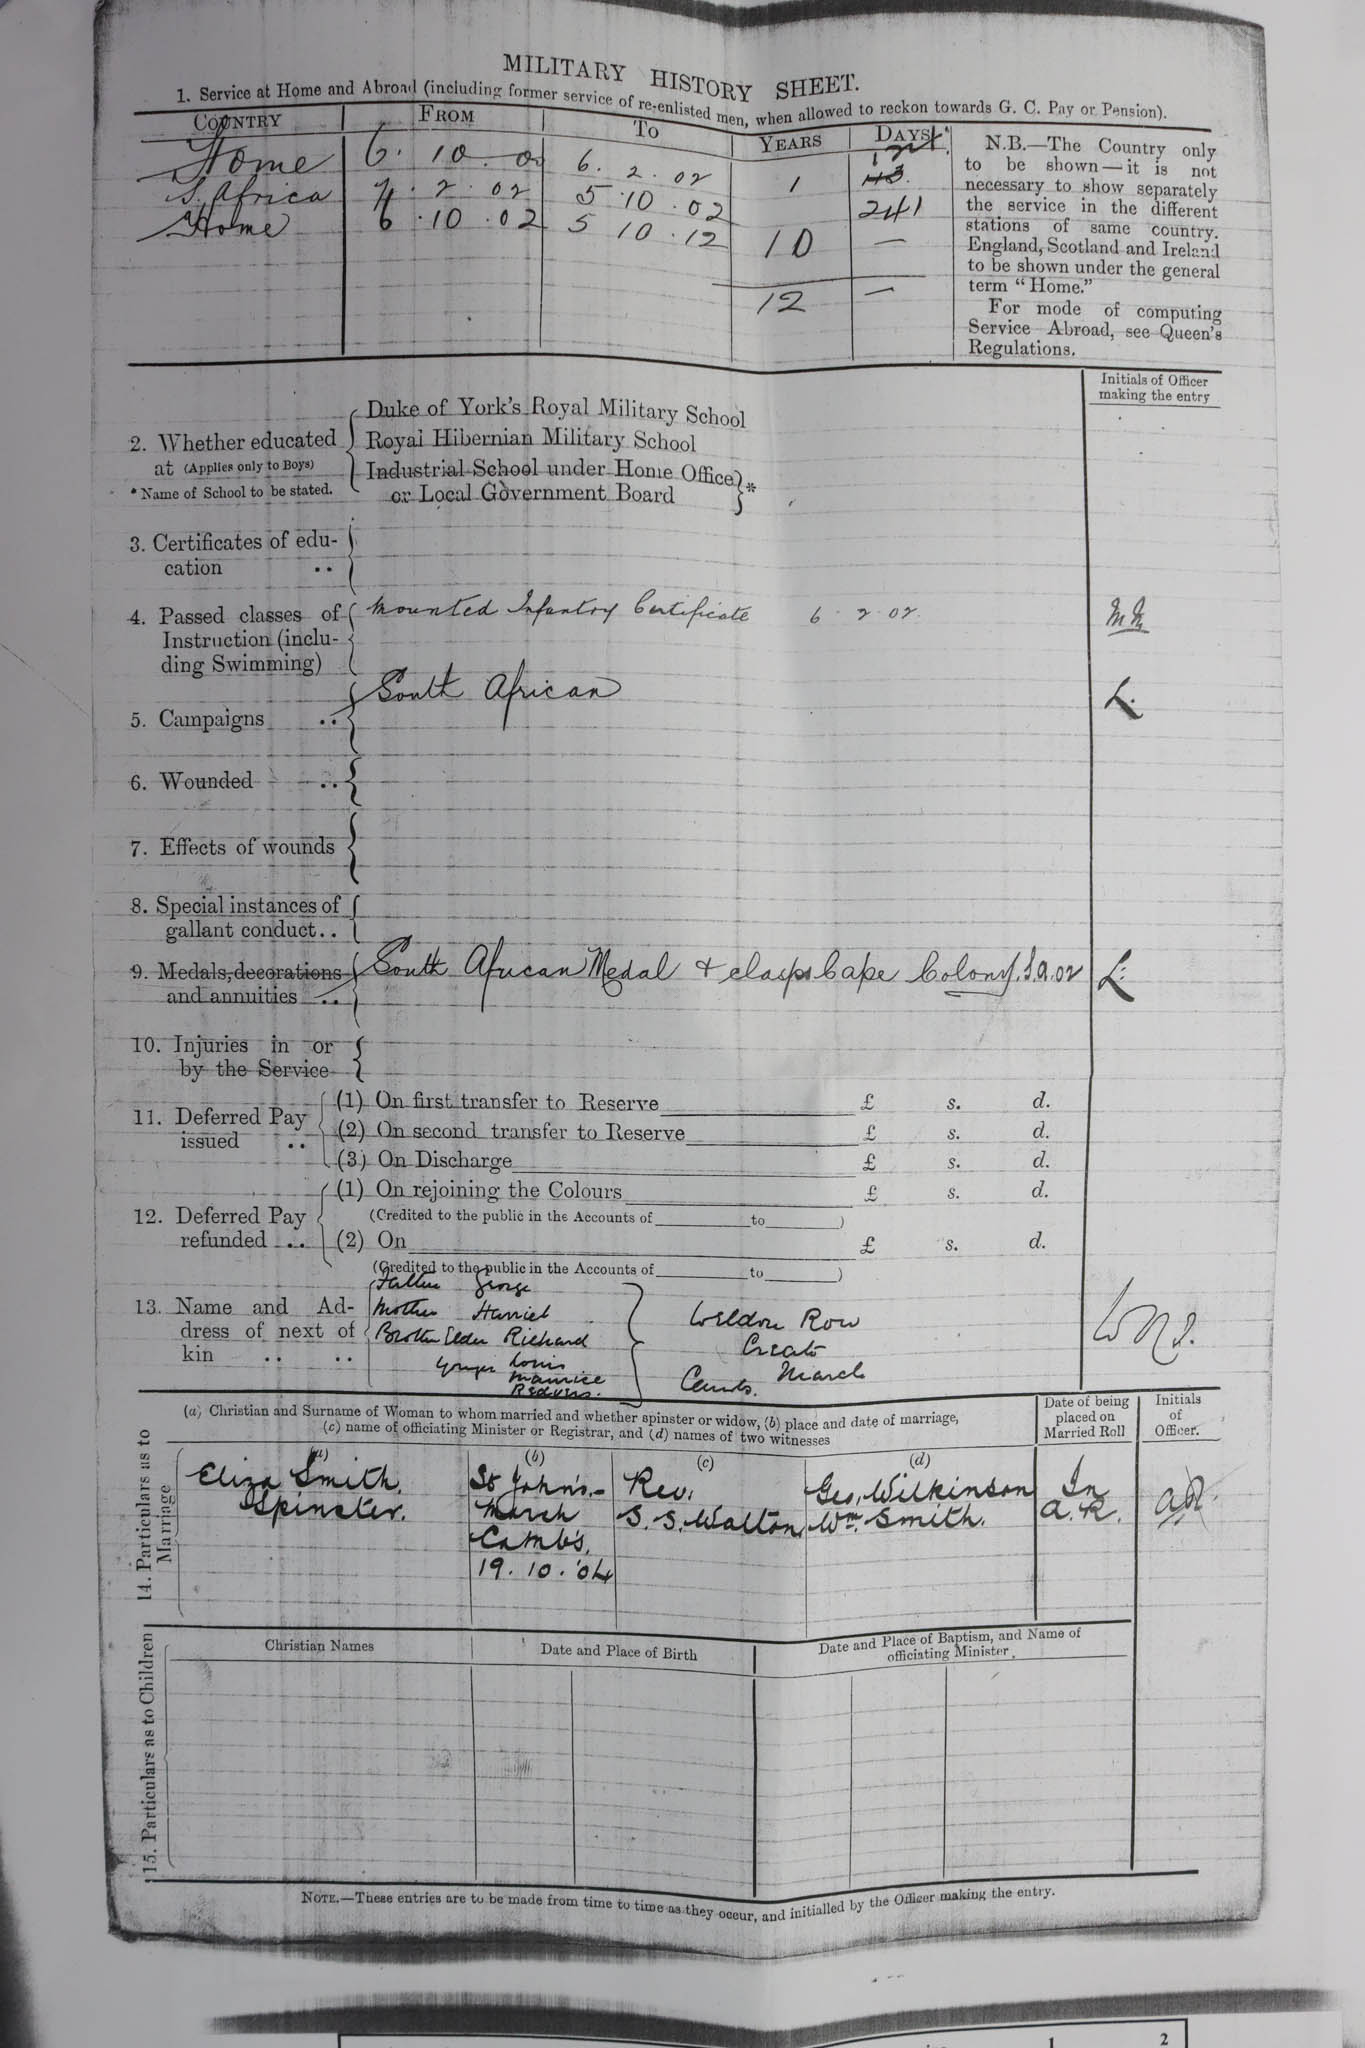 MILITARY HISTORY SHEET.
1. Service at Home and Abroad (including former service of re-enlisted men, when allowed to reckon towards G. C. Pay or Pension).
COUNTRY FROM TO YEARS DAYS
Home 6. 10. 0 6. 2. 02 1 124
S. Africa 7. 2. 02 5. 10. 02 241
Home 6. 10. 02 5 10. 12 10 —
12 —
N.B.—The Country only
to be shown—it is not
necessary to show separately
the service in the different
stations of same country.
England, Scotland and Ireland
to be shown under the general
term "Home."
For mode of computing
Service Abroad, see Queen's
Regulations.
Initials of Officer
making the entry
2. Whether educated
at (Applies only to Boys)
* Name of School to be stated.
Duke of York's Royal Military School
Royal Hibernian Military School
Industrial School under Home Office
or Local Government Board *
3. Certificates of edu-
cation ..
4. Passed classes of
Instruction (inclu-
ding Swimming)
Mounted Infantry Certificate 6. 2. 02.
5. Campaigns ..
South African L.
6. Wounded ..
7. Effects of wounds
8. Special instances of
gallant conduct..
9. Medals, decorations
and annuities ..
South African Medal + clasps Cape Colony. S.A. 02 L.
10. Injuries in or
by the Service
11. Deferred Pay
issued ..
(1) On first transfer to Reserve £ s. d.
(2) On second transfer to Reserve £ s. d.
(3) On Discharge £ s. d.
12. Deferred Pay
refunded ..
(1) On rejoining the Colours £ s. d.
(Credited to the public in the Accounts of to )
(2) On £ s. d.
(Credited to the public in the Accounts of to )
13. Name and Ad-
dress of next of
kin .. ..
Father George
Mother Harriet
Brother Elder Richard
Younger Louis
Maurice
Redvers.
Weldon Row
Creato
March
Cambs.
14. Particulars as to
Marriage
(a) Christian and Surname of Woman to whom married and whether spinster or widow, (b) place and date of marriage,
(c) name of officiating Minister or Registrar, and (d) names of two witnesses
Date of being
placed on
Married Roll
Initials
of
Officer.
(a) (b) (c) (d)
Eliza Smith.
Spinster.
St John's.-
March
Cambs.
19. 10. '04
Rev.
S. S. Walton
Geo. Wilkinson
Wm. Smith.
In
A. R.
15. Particulars as to Children
Christian Names
Date and Place of Birth
Date and Place of Baptism, and Name of
officiating Minister.
NOTE.—These entries are to be made from time to time as they occur, and initialled by the Officer making the entry.
1 2